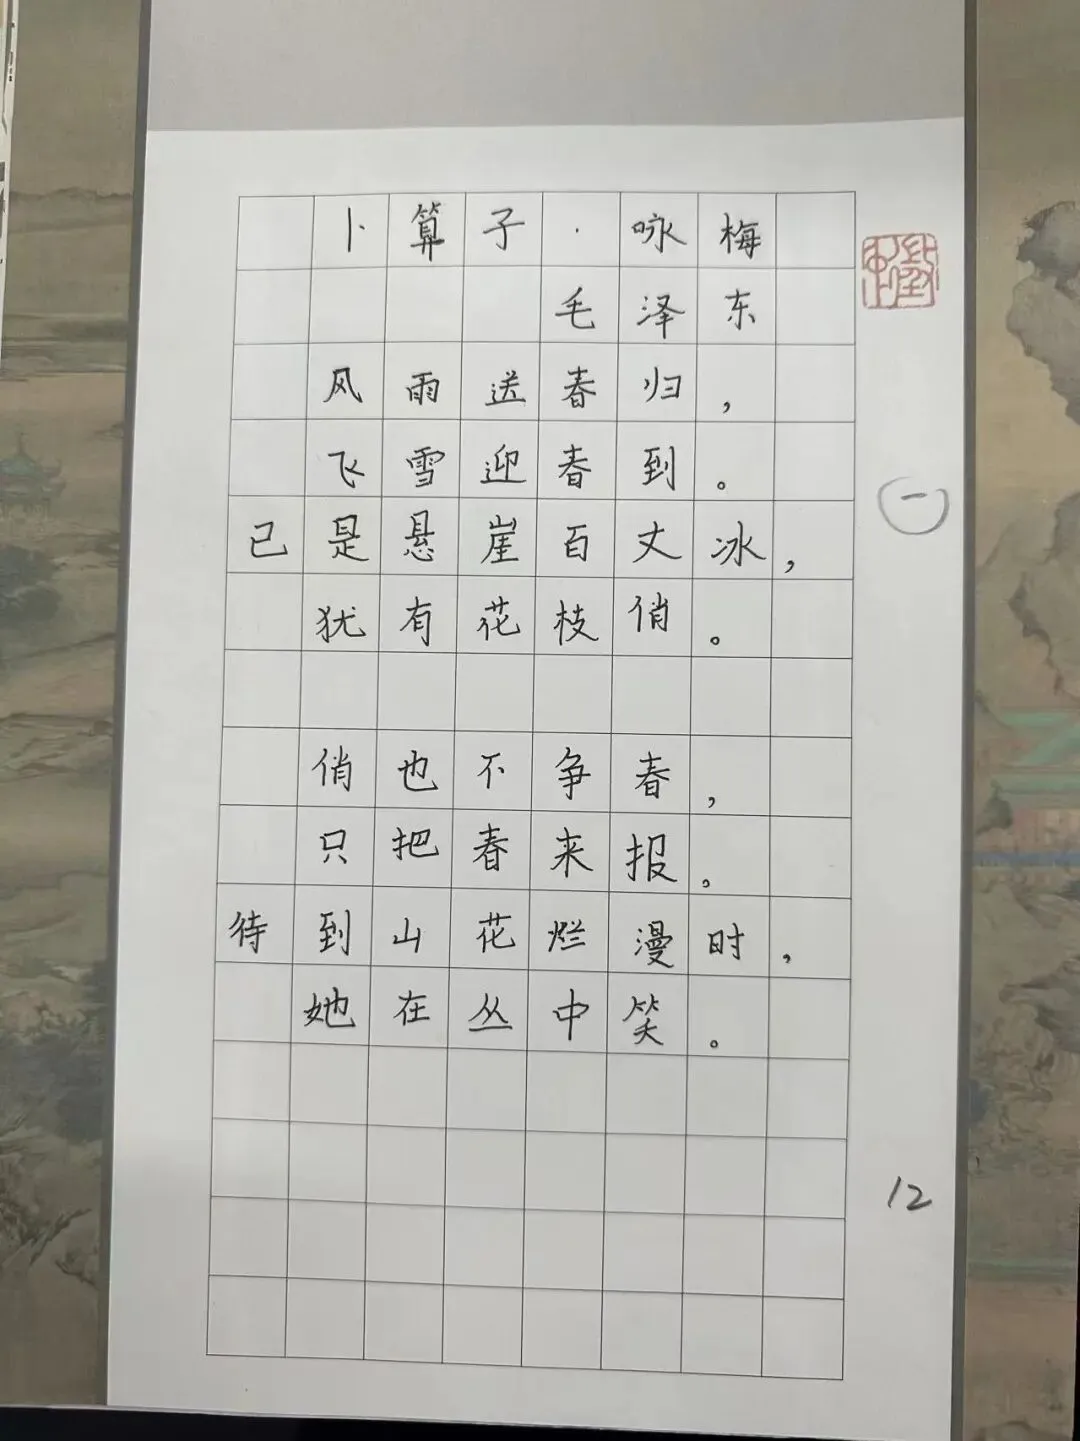 卜算子·咏梅
毛泽东
风雨送春归，
飞雪迎春到。
已是悬崖百丈冰，
犹有花枝俏。
俏也不争春，
只把春来报。
待到山花烂漫时，
她在丛中笑。
一
12